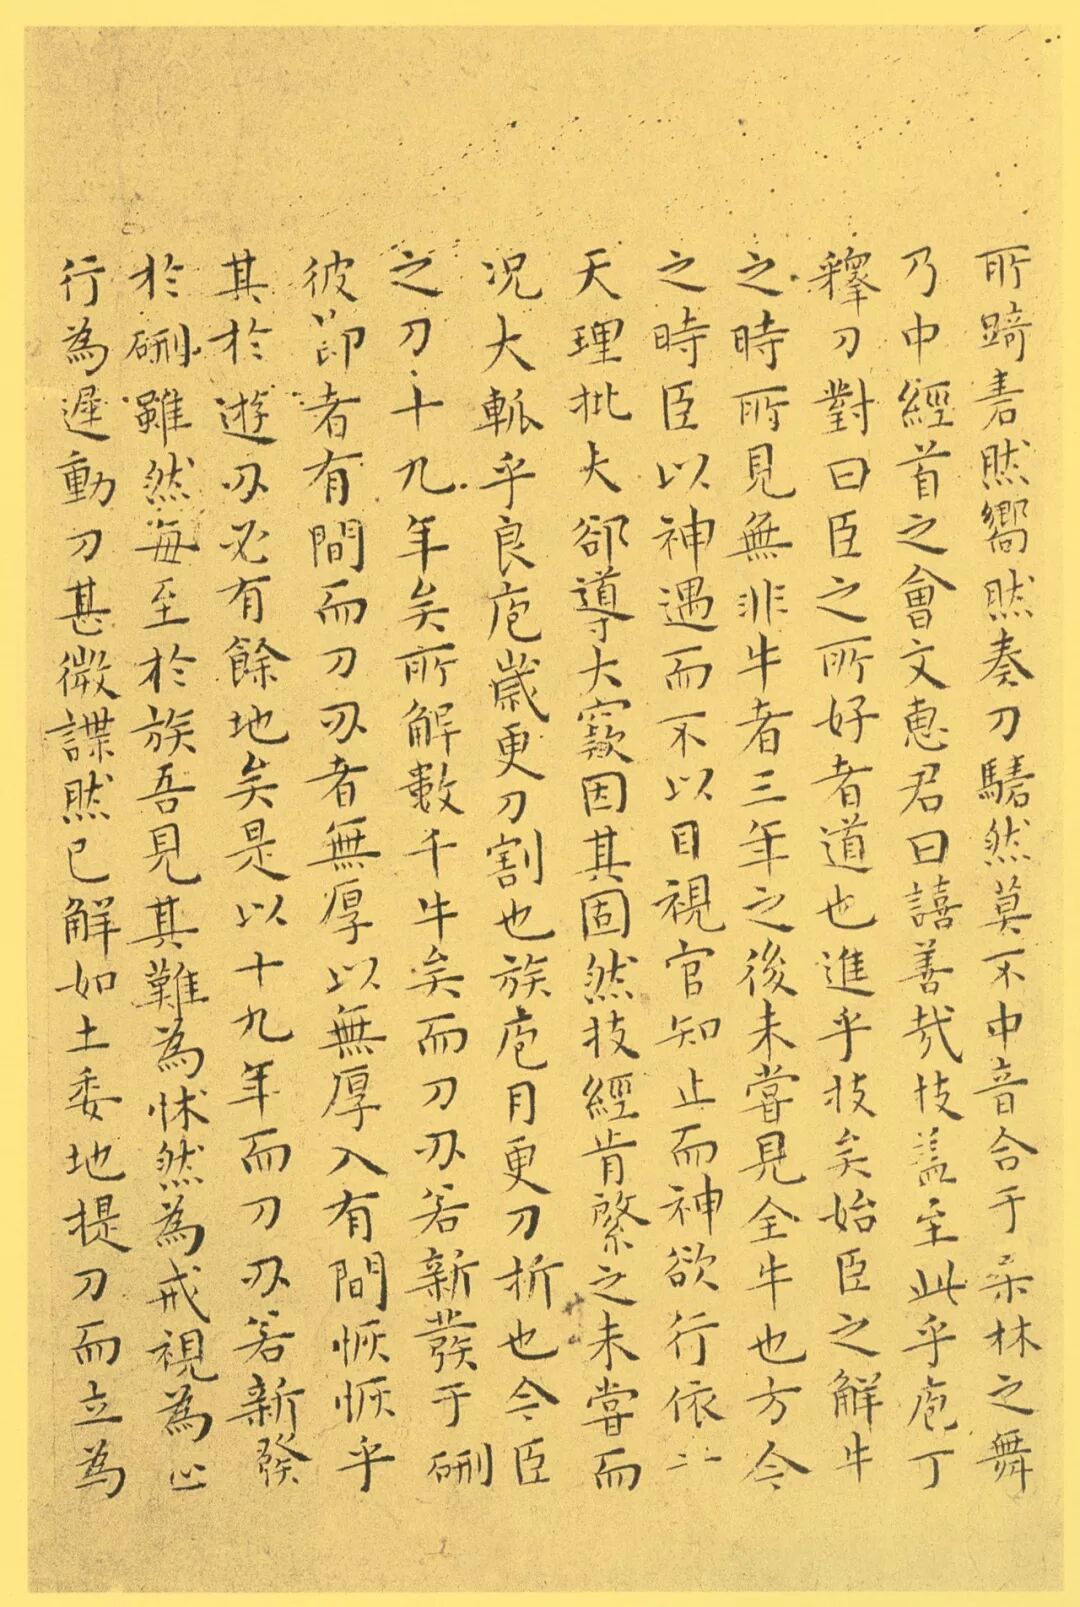 所踦砉然嚮然奏刀騞然莫不中音合于桒林之舞
乃中經首之會文惠君曰譆善哉技蓋至此乎庖丁
釋刀對曰臣之所好者道也進乎技矣始臣之解牛
之時所見無非牛者三年之後未嘗見全牛也方今
之時臣以神遇而不以目視官知止而神欲行依〻
天理批大郤導大窾因其固然技經肯綮之未嘗而
況大軱乎良庖歲更刀割也族庖月更刀折也今臣
之刀十九年矣所解數千牛矣而刀刃若新發于硎
彼節者有間而刀刃者無厚以無厚入有間恢恢乎
其於遊刃必有餘地矣是以十九年而刀刃若新發
於硎雖然每至於族吾見其難為怵然為戒視為止
行為遲動刀甚微諜然已解如土委地提刀而立為